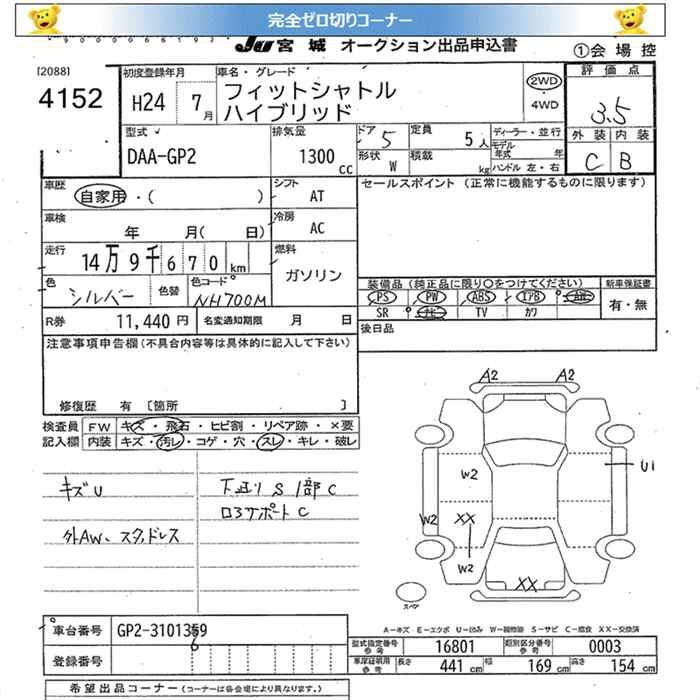 完全ゼロ切りコーナー
JU 宮城 オークション出品申込書
①会場控
[2088]
4152
初度登録年月
H24 7月
車名・グレード
フィットシャトル
ハイブリッド
2WD
・
4WD
評価点
3.5
外装 内装
C B
型式
DAA-GP2
排気量
1300cc
ドア 5
定員 5人
ディーラー・並行
モデル年式 年
形状 W
積載 kg
ハンドル 左・右
車歴
自家用・( )
シフト
AT
セールスポイント (正常に機能するものに限ります)
車検
年 月( 日)
冷房
AC
走行
14万9千670km
燃料
ガソリン
色
シルバー
色替
色コード
NH700M
装備品 (純正品に限り○をつけてください)
新車保証書
PS PW ABS エアB AW
SR ナビ TV カワ
有・無
R券 11,440円 名変通知期限 月 日
後日品
注意事項申告欄(不具合内容等は具体的に記入して下さい)
修復歴 有 [箇所 ]
検査員
記入欄
FW キズ・飛石・ヒビ割・リペア跡・×要
内装 キズ・汚レ・コゲ・穴・スレ・キレ・破レ
キズU
外AW、スタッドレス
下廻りS 1部C
ロアサポートC
A2 A2
W2
U1
W2 XX
W2
XX
スペア
A-キズ E-エクボ U-凹み W-補修跡 S-サビ C-腐食 XX-交換済
車台番号 GP2-3101359
6
登録番号
型式指定番号
参考
16801
類別区分番号
参考
0003
車庫証明用
参考
長さ 441cm 幅 169cm 高さ 154cm
希望出品コーナー (コーナーは各会場により異なります。)